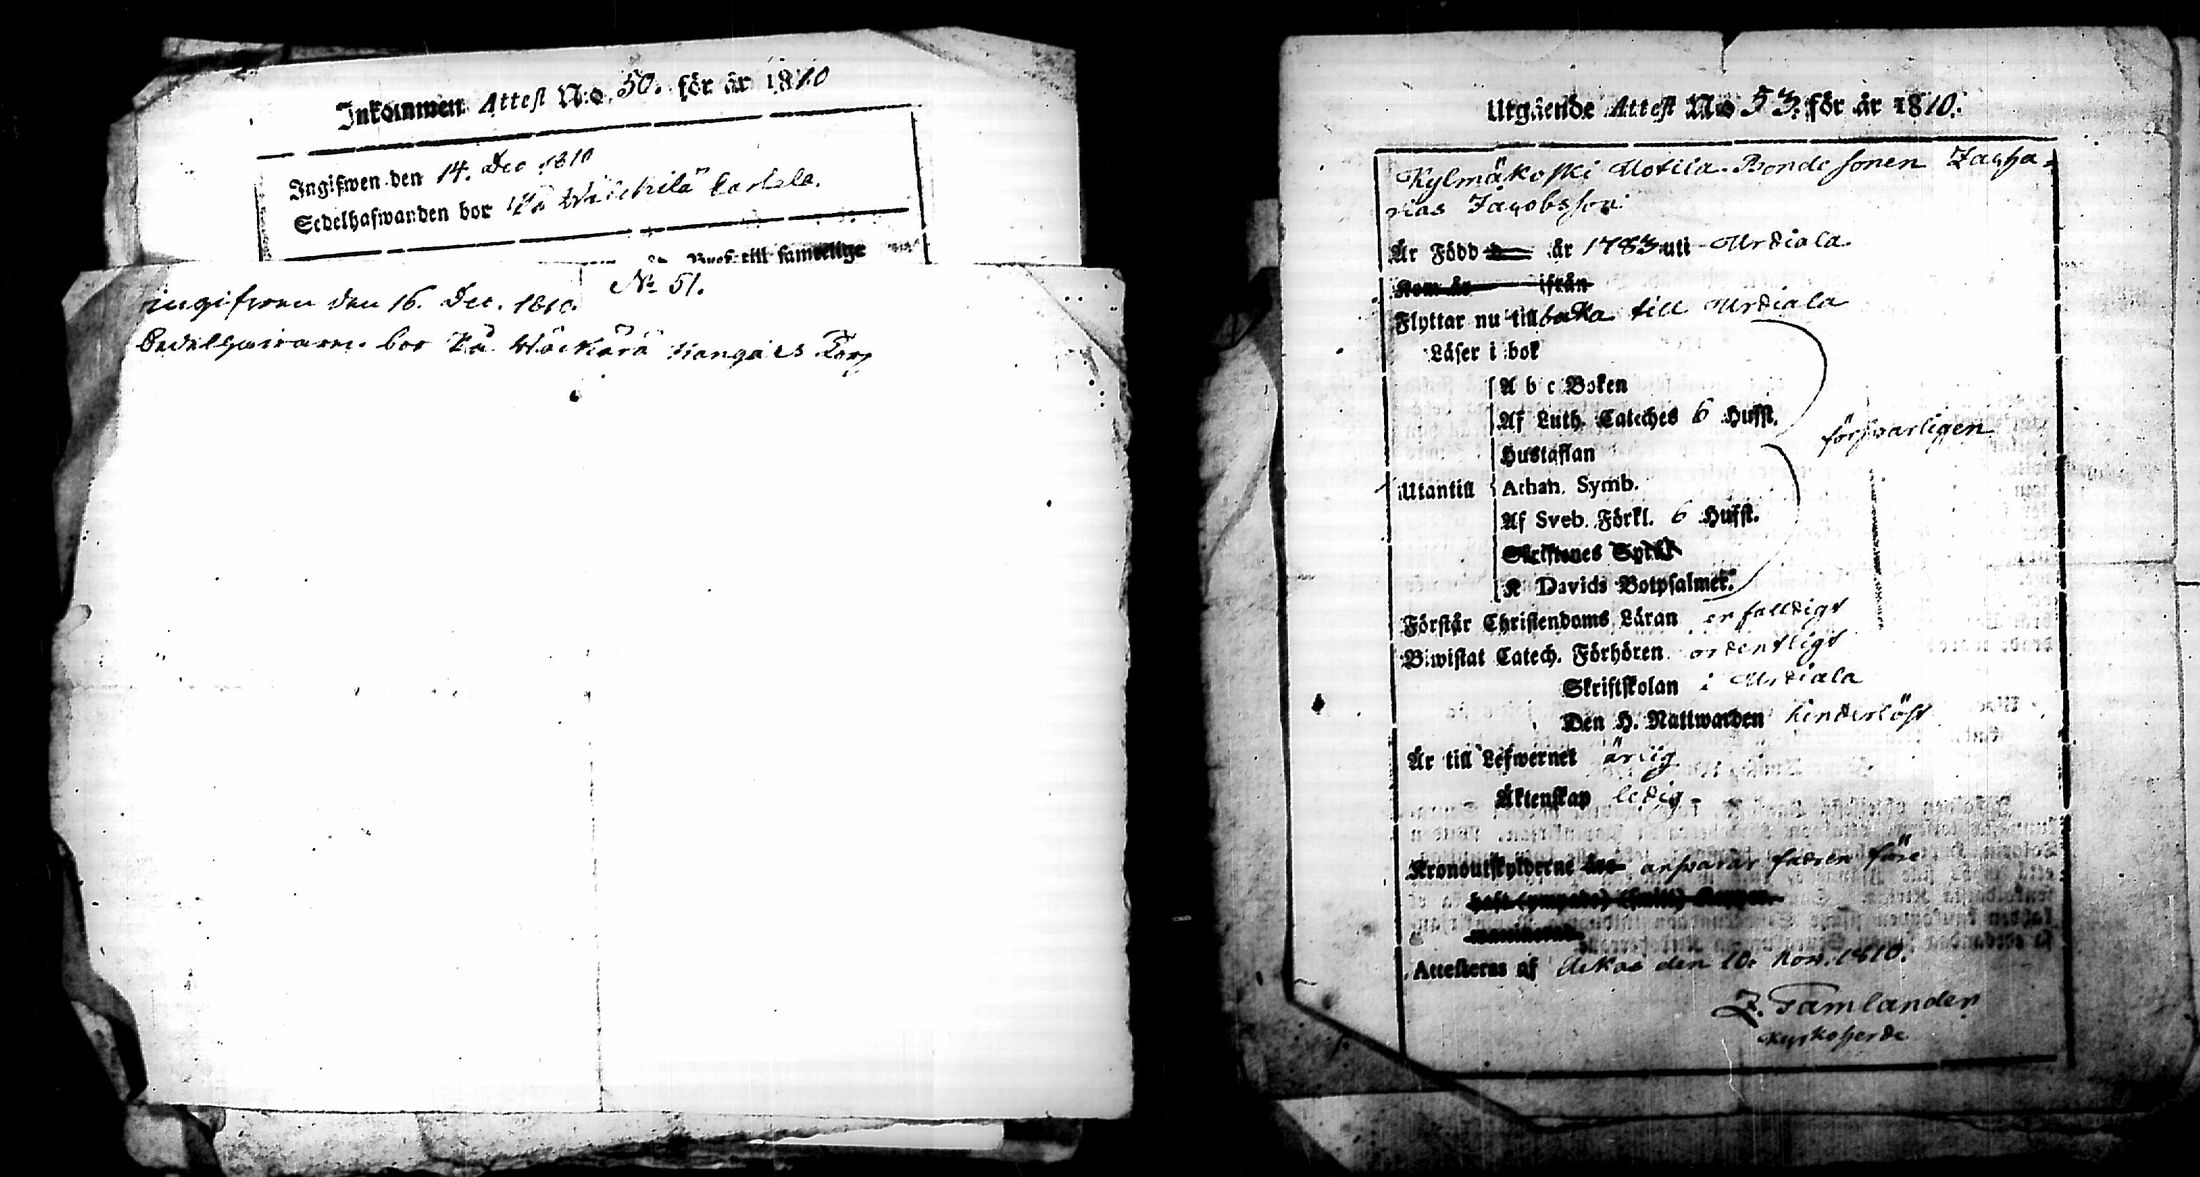 Inkommen Attest N:o 50. för år 1810
Ingifwen den 14. Dec 1810
Sedelhafwanden bor På
till samtelige
N: 51.
ingifwen den 16. Dec. 1810.
bor På Torp
Utgående Attest No 53. för år 1810.
Kylmäkoski Uotila Bonde sonen Zacha-
rias Jacobsson
Är Född år 1783 uti Urdiala.
Kom år ifrån
Flyttar nu tillbaka till Urdiala
Läser i bok
A b c Boken
Af Luth. Cateches 6 Hufst.
försvarligen
Hustaflan
Utantill Athan. Symb.
Af Sveb. Förkl. 6 Hufst.
Skriftenes Språk
K Davids Botpsalmer.
Förstår Christendoms Läran enfaldigt
Biwistat Catech. Förhören ordentligt
Skriftskolan i Urdiala
Den H. Nattwarden hinderlöst
Är till Lefwernet ärlig
Äktenskap ledig
Kronoutskylderne ansvarar fadren före
Attesteras af Ackas den 10. Nov. 1810.
Z. Tamlander
Kyrkoherde